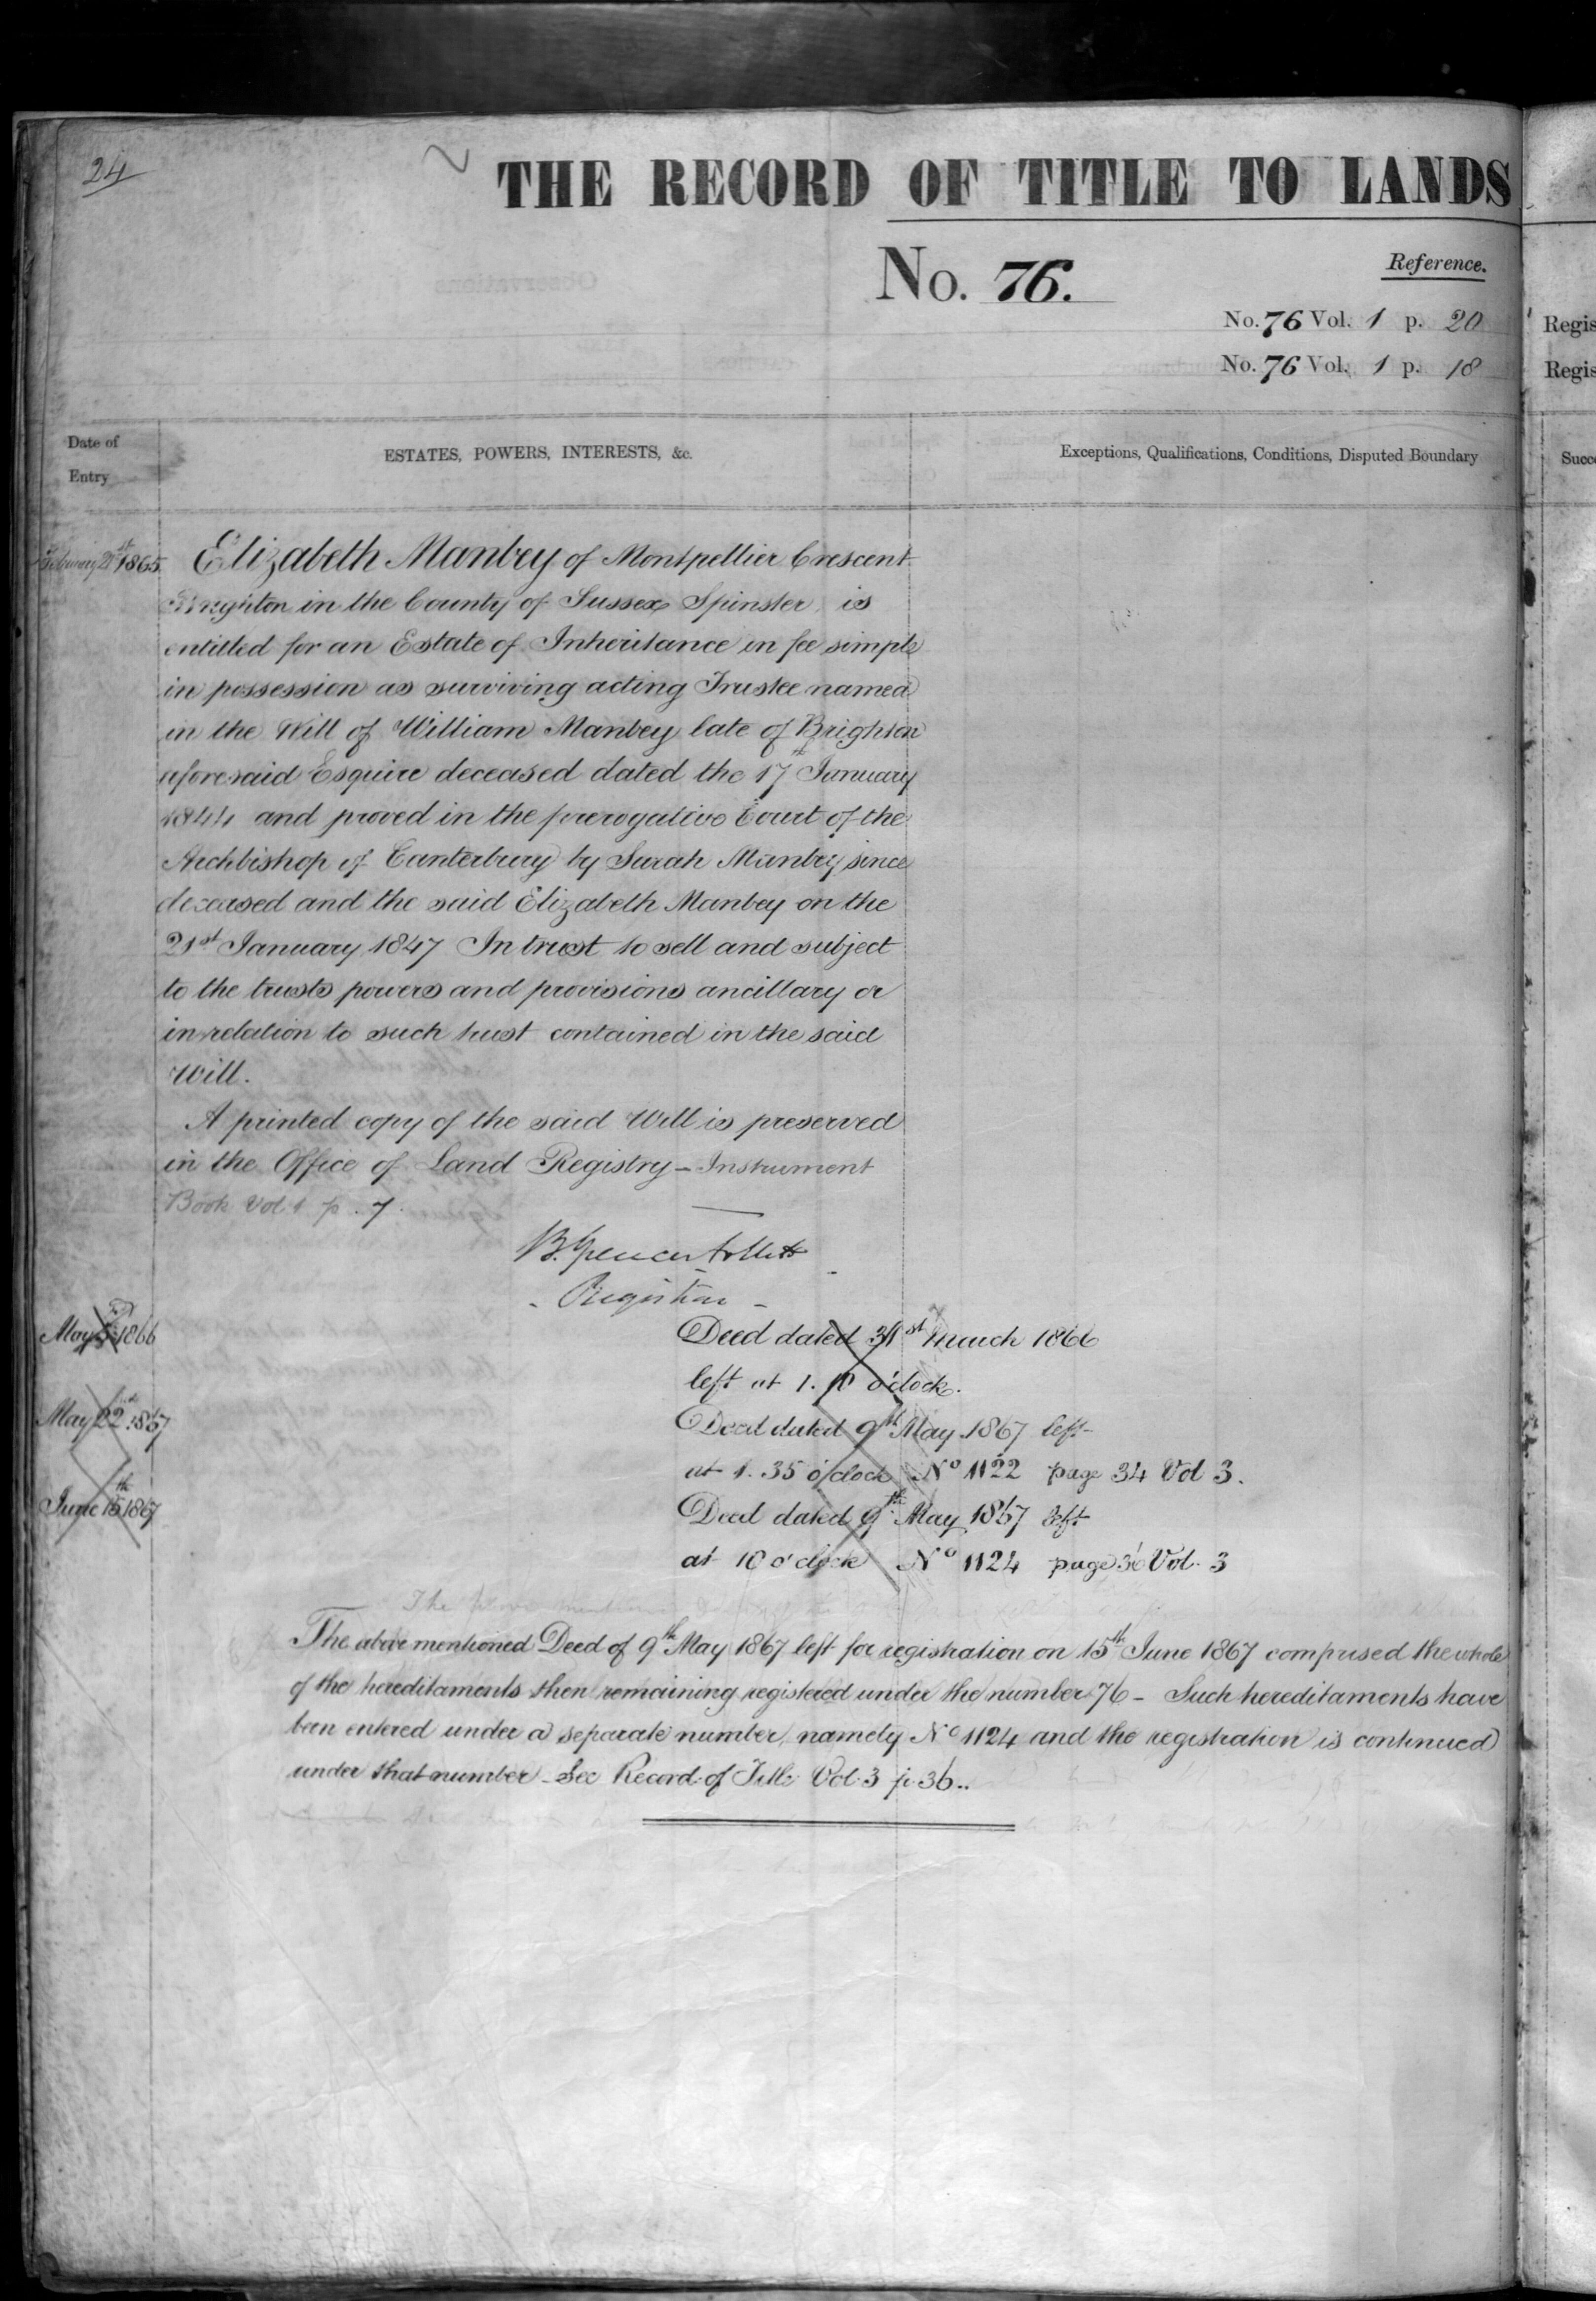 24
THE RECORD OF TITLE TO LANDS
No. 76.
Reference.
No. 76 Vol. 1 p. 20
No. 76 Vol. 1 p. 18
Regis
Regis
Date of
Entry
ESTATES, POWERS, INTERESTS, &c.
Exceptions, Qualifications, Conditions, Disputed Boundary
Succe
February 21st 1865
Elizabeth Manbey of Montpellier Crescent
Brighton in the County of Sussex Spinster is
entitled for an Estate of Inheritance in fee simple
in possession as surviving acting Trustee named
in the Will of William Manbey late of Brighton
aforesaid Esquire deceased dated the 17th January
1844 and proved in the prerogative Court of the
Archbishop of Canterbury by Sarah Manbey since
deceased and the said Elizabeth Manbey on the
21st January 1847 In trust to sell and subject
to the trusts powers and provisions ancillary or
in relation to such trust contained in the said
Will.
A printed copy of the said Will is preserved
in the Office of Land Registry - Instrument
Book Vol 1 p. 7.
B. Spencer Follett
Registrar
May 1866
Deed dated 31st March 1866
left at 1. 10 o'clock.
May 22nd 1867
Deed dated 9th May 1867 left
at 1. 35 o'clock No 1122 page 34 Vol 3.
June 15th 1867
Deed dated 9th May 1867 left
at 10 o'clock No 1124 page 36 Vol. 3
The above mentioned Deed of 9th May 1867 left for registration on 15th June 1867 comprised the whole
of the hereditaments then remaining registered under the number 76 - Such hereditaments have
been entered under a separate number, namely No 1124 and the registration is continued
under that number - See Record of Title Vol 3 p. 36..